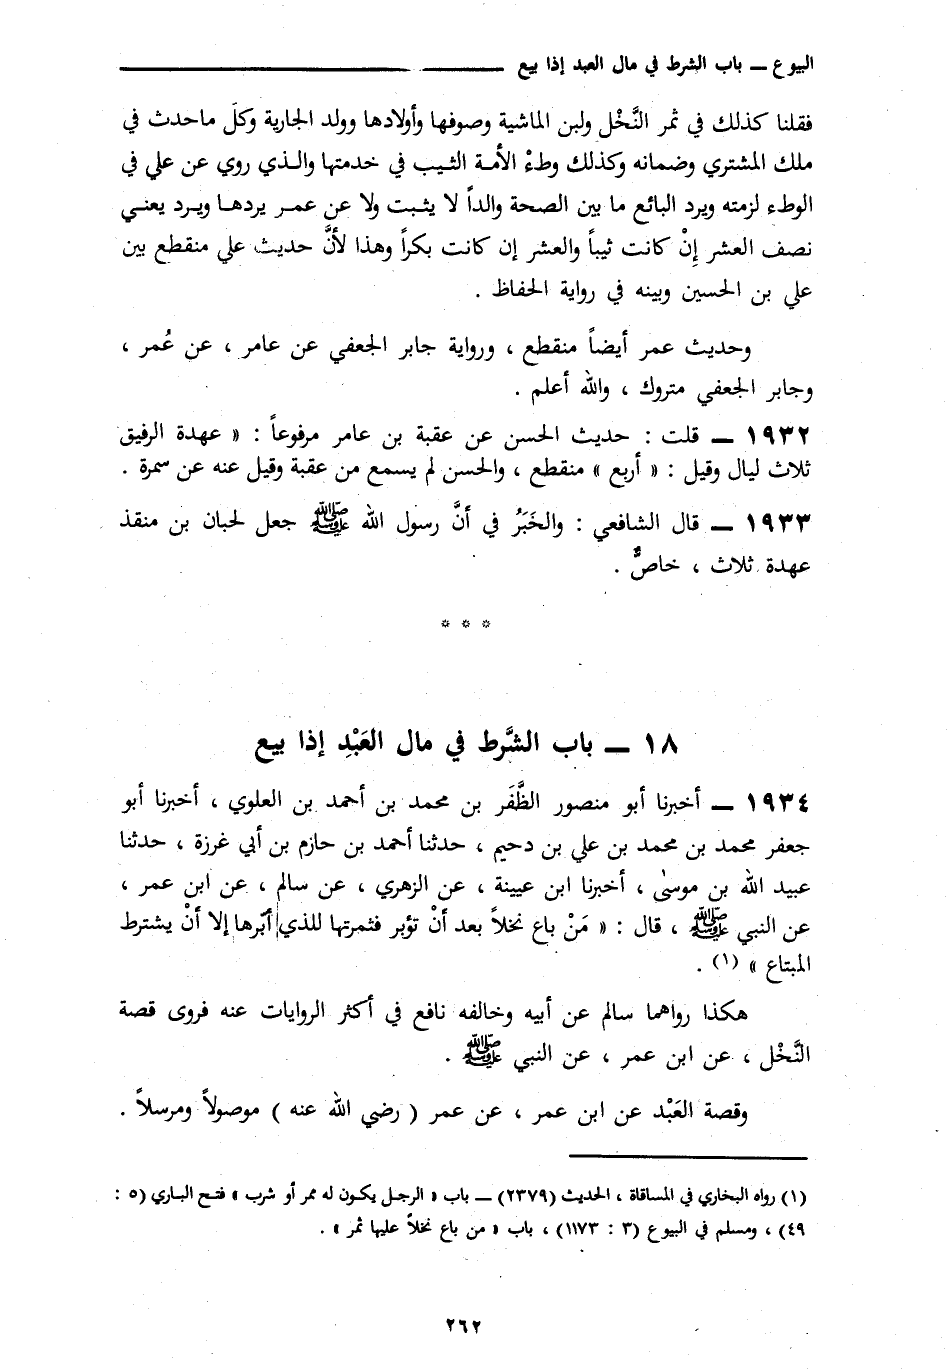 البيوع ـــ باب الشرط في مال العبد إذا بيع
فقلنا كذلك في ثمر النَّخْل ولبن الماشية وصوفها وأولادها وولد الجارية وكلَ ماحدث في
ملك المشتري وضمانه وكذلك وطءْ الأمة الثيب في خدمتها والذي روي عن علي في
الوطء لزمته ويرد البائع ما بين الصحة والداً لا يثبت ولا عن عمر يردها ويرد يعني
نصف العشر إِنْ كانت ثيباً والعشر إن كانت بكراً وهذا لأنَّ حديث علي منقطع بين
علي بن الحسين وبينه في رواية الحفاظ .
وحديث عمر أيضاً منقطع ، ورواية جابر الجعفي عن عامر ، عن عُمر ،
وجابر الجعفي متروك ، والله أعلم .
١٩٣٢ ـــ قلت : حديث الحسن عن عقبة بن عامر مرفوعاً : « عهدة الرفيق
ثلاث ليال وقيل : « أربع » منقطع ، والحسن لم يسمع من عقبة وقيل عنه عن سمرة .
١٩٣٣ ـــ قال الشافعي : والخَبَرُ في أنَّ رسول الله ﷺ جعل لحبان بن منقذ
عهدة ثلاث ، خاصٌّ .
* * *
١٨ ـــ باب الشَّرط في مال العَبْدِ إذا بيع
١٩٣٤ ـــ أخبرنا أبو منصور الظَّفَر بن محمد بن أحمد بن العلوي ، أخبرنا أبو
جعفر محمد بن محمد بن علي بن دحيم ، حدثنا أحمد بن حازم بن أبي غرزة ، حدثنا
عبيد الله بن موسىٰ ، أخبرنا ابن عيينة ، عن الزهري ، عن سالم ، عن ابن عمر ،
عن النبي ﷺ ، قال : « مَنْ باع نخلاً بعد أنْ تؤبر فثمرتها للذي أبّرها إلا أنْ يشترط
المبتاع » (١) .
هكذا رواهما سالم عن أبيه وخالفه نافع في أكثر الروايات عنه فروى قصة
النَّخْل ، عن ابن عمر ، عن النبي ﷺ .
وقصة العَبْد عن ابن عمر ، عن عمر ( رضي الله عنه ) موصولاً ومرسلاً .
(١) رواه البخاري في المساقاة ، الحديث (٢٣٧٩) ـــ باب « الرجل يكون له ممر أو شرب » فتح الباري (٥ :
٤٩) ، ومسلم في البيوع (٣ : ١١٧٣) ، باب « من باع نخلاً عليها ثمر » .
٢٦٢